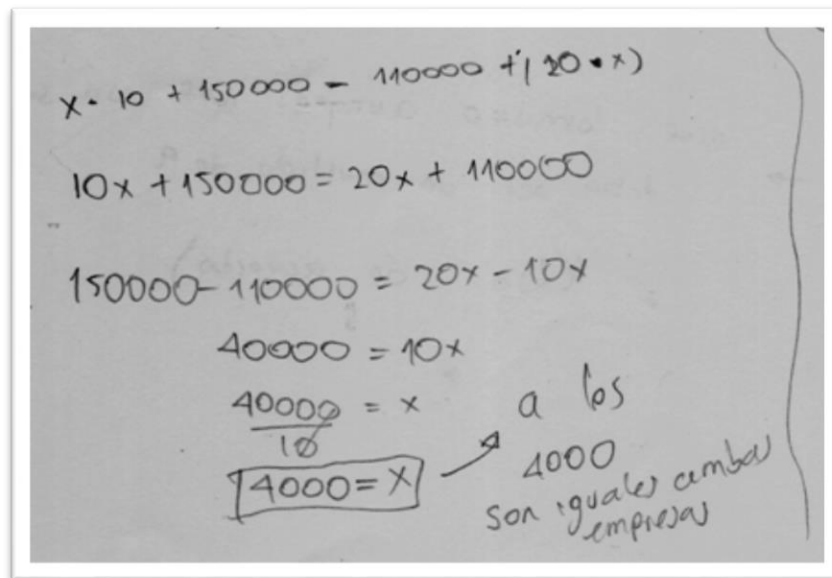 x • 10 + 150000 - 110000 + (20 • x)
10x + 150000 = 20x + 110000
150000 - 110000 = 20x - 10x
40000 = 10x
40000 = x
10
4000 = x
a los
4000
son iguales ambas
empresas